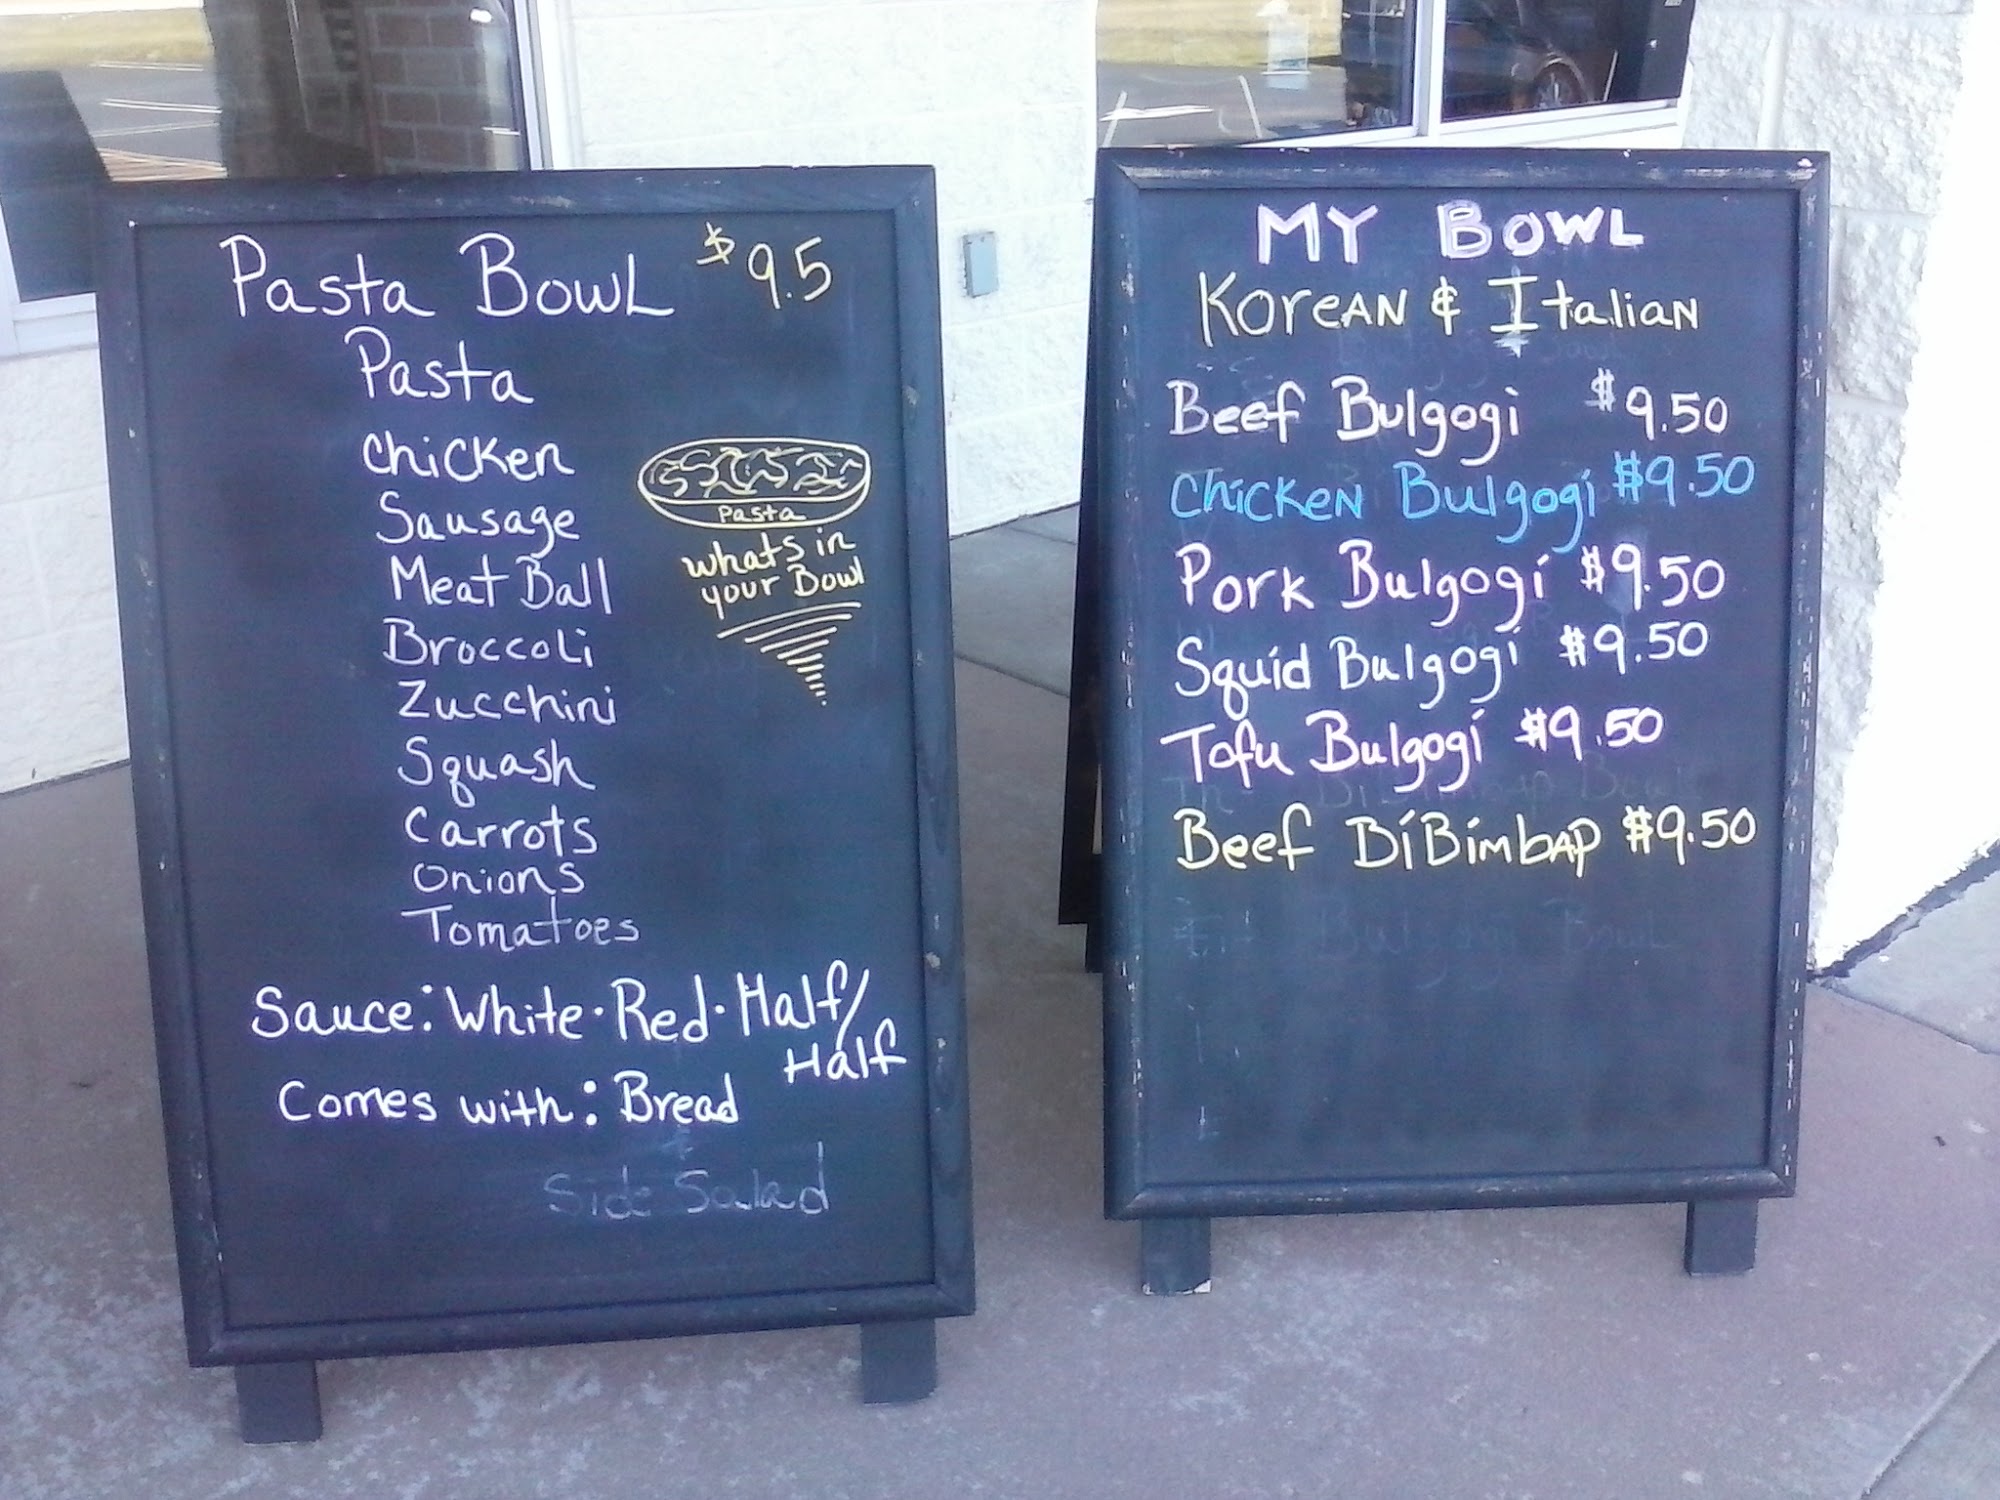 Pasta Bowl $9.5
Pasta
Chicken
Sausage
Meat Ball
Broccoli
Zucchini
Squash
Carrots
Onions
Tomatoes
Pasta
whats in
your Bowl
Sauce: White · Red · Half/
Half
Comes with: Bread
&
Side Salad
MY BOWL
Korean & Italian
Beef Bulgogi $9.50
Chicken Bulgogi $9.50
Pork Bulgogi $9.50
Squid Bulgogi $9.50
Tofu Bulgogi $9.50
Beef DiBimbap $9.50